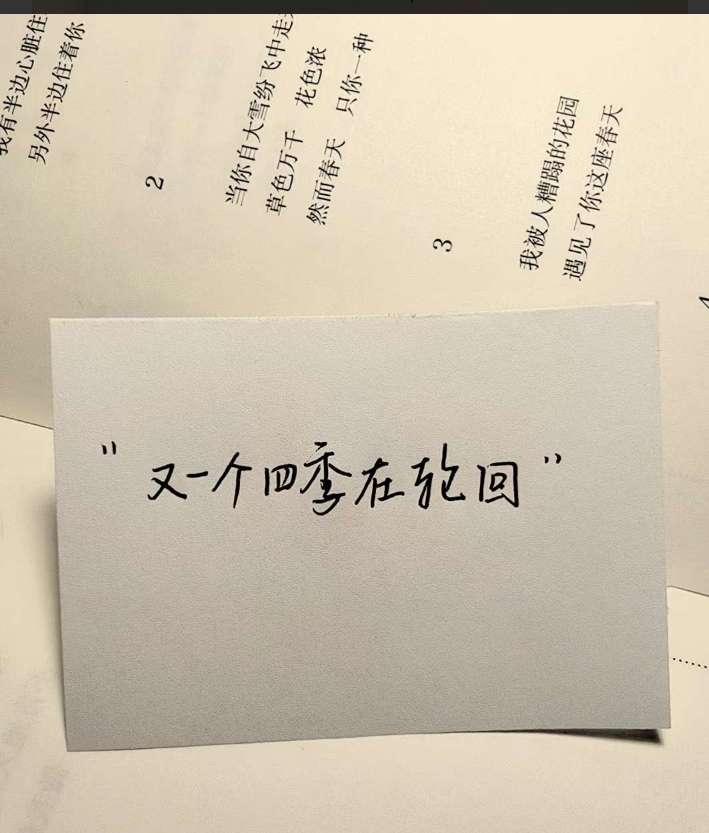 我有半边心脏住
另外半边住着你
2
当你自大雪纷飞中走
草色万千 花色浓
然而春天 只你一种
3
我被人糟蹋的花园
遇见了你这座春天
"又一个四季在轮回"